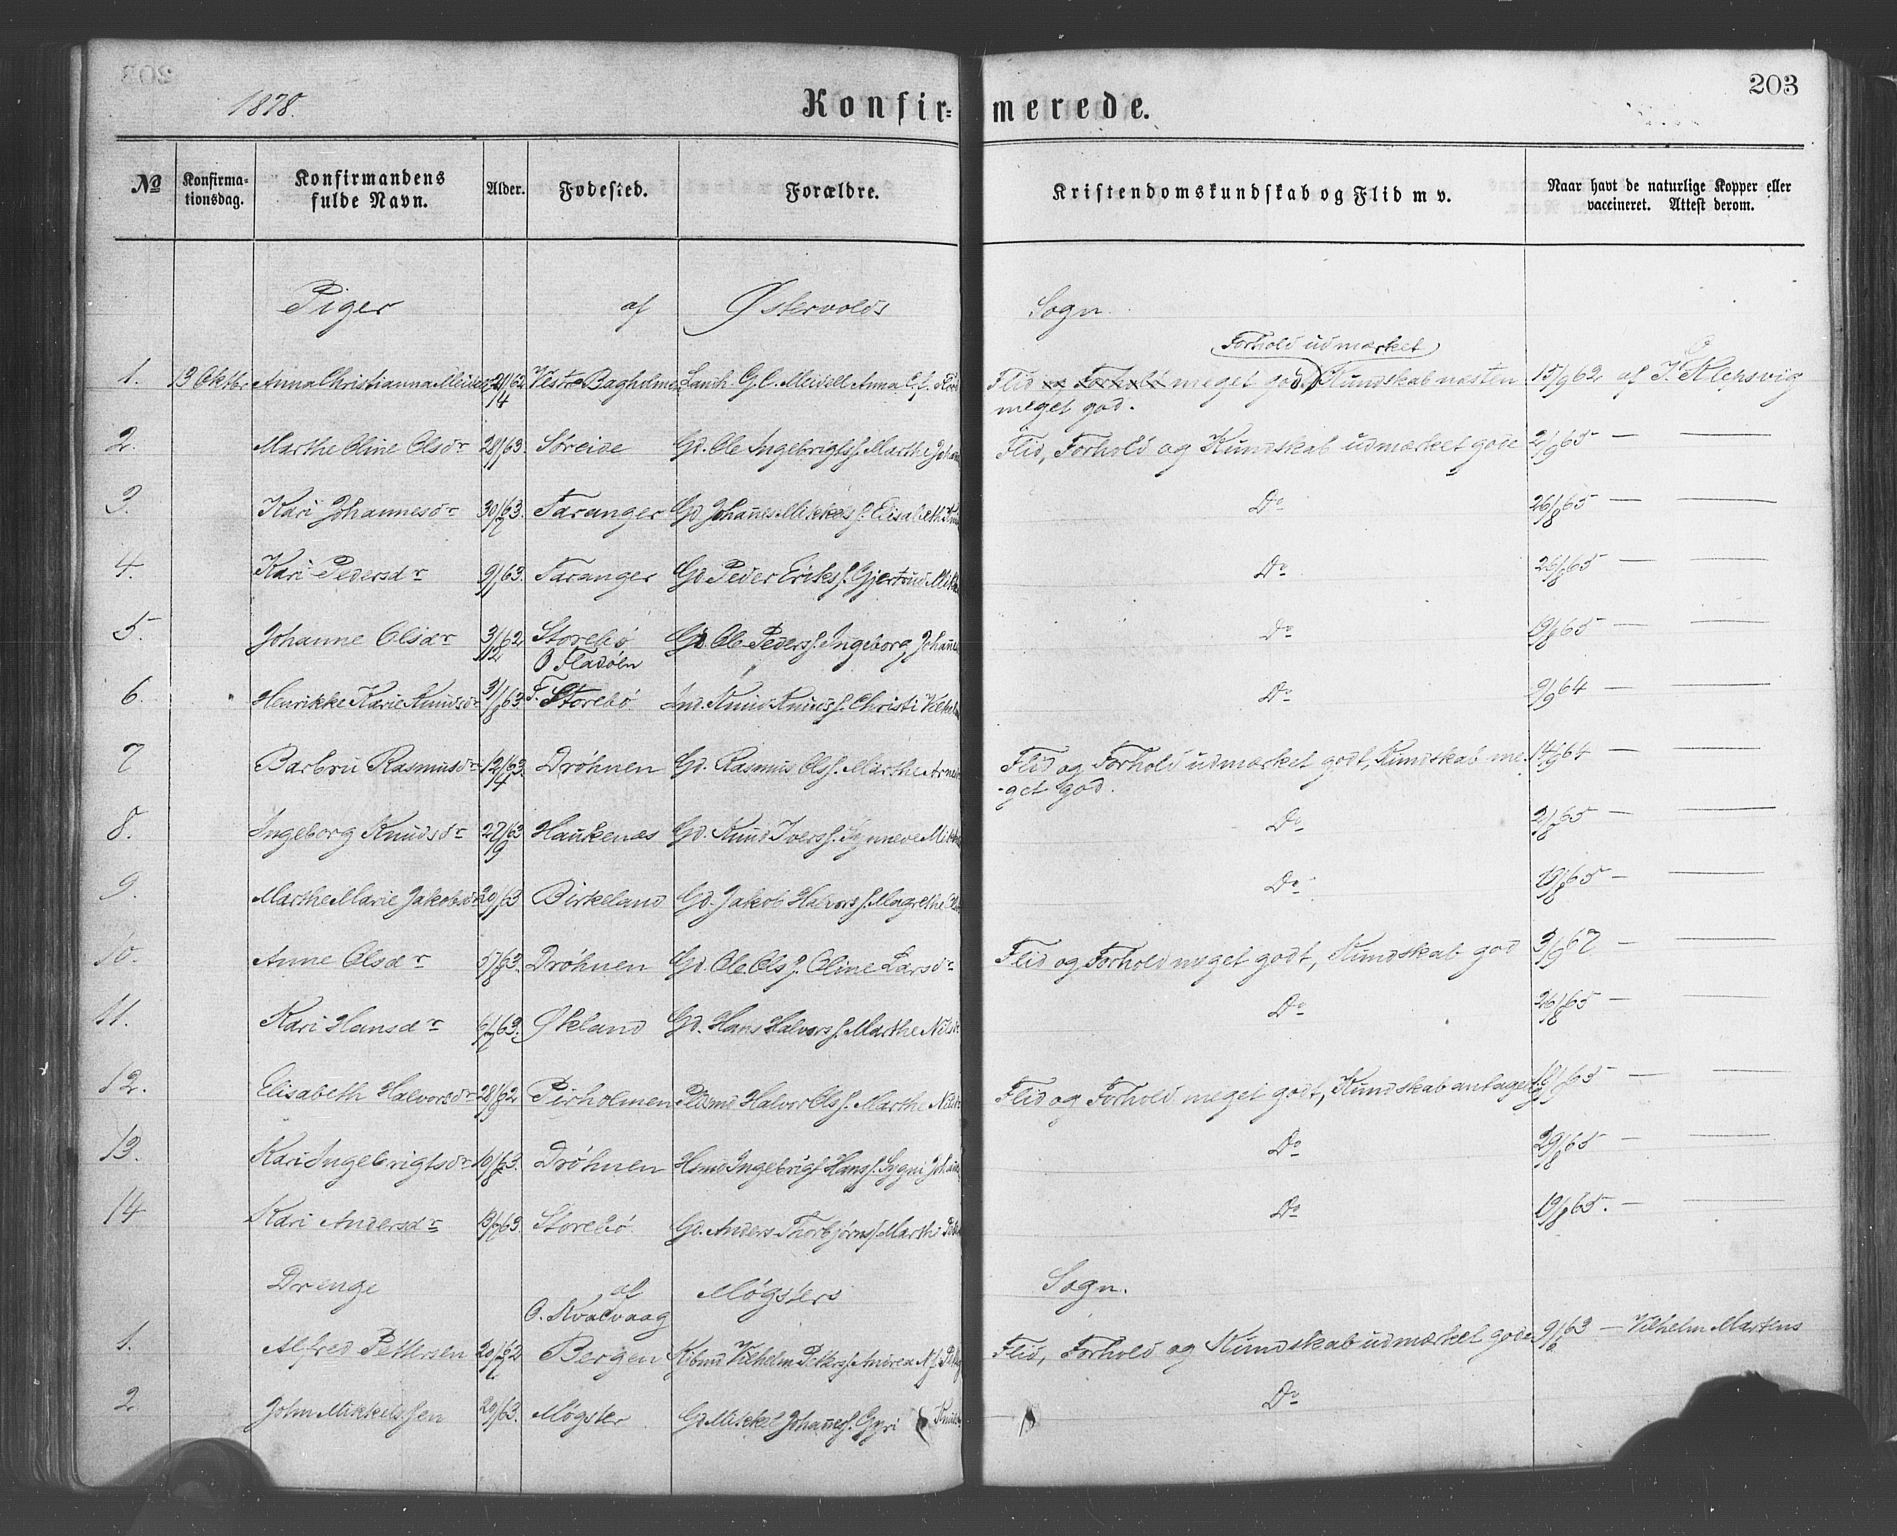 1878.
Konfir-
merede.
203
№
Konfirma-
tionsdag.
Konfirmandens
fulde Navn.
Alder.
Fødested.
Forældre.
Kristendomskundskab og Flid m v.
Naar havt de naturlige Kopper eller
vaccineret. Attest derom.
Piger af Østervolds Sogn.
Forhold udmærket
1. 13 Oktbr Anna Christianna Meidell 21/4 62 Vestre Bagholmen Landh. G. C. Meidell Anna C. Flid og Forhold meget god. Kundskab næsten 15/9 62 af J. Klepsvig
meget god.
2. Marthe Oline Olsdr 63. Søreide Gd. Ole Ingebrigts. Marthe Flid, Forhold og Kundskab udmærket gode 2/9 65 — —
3. Kari Johannesdr 63. Taranger Gd Johanes Mikkels. Elisabeth Do 26/8 65 — —
4. Kari Pedersdr 63. Taranger Gd Peder Eriks. Gjertrud Do 26/8 65 — —
5. Johanne Olsdr 31/12 62 Storebø Gd. Ole Peders. Ingeborg Do 19/8 65 — —
O Fladøen
6. Henrikke Karie Knudsdr 31/8 63. F. Storebø Ind. Knud Knuds. Christi Do 9/9 64 — —
7 Barbru Rasmusdr 12/4 63. Drøhnen Gd. Rasmus Ols. Marthe Flid og Forhold udmærket godt, Kundskab me- 14/9 64 — —
-get god.
8. Ingeborg Knudsdr 27/9 63 Haukenæs Gd. Knud Ivers. Synneve Do 2/8 65 — —
9. Marthe Marie Jakobsdr 63 Birkeland Gd. Jakob Halvors. Magrethe Do 19/8 65 — —
10. Anne Olsdr 63. Drøhnen Gd. Ole Ols. Oline Larsdr Flid og Forhold meget godt, Kundskab god 3/9 67 — —
11. Kari Hansdr 63. Økland Gd. Hans Halvors. Marthe Do 26/8 65 — —
12. Elisabeth Halvorsdr 62 Pirholmen Plsmd Halvor Ols. Marthe Flid og Forhold meget godt, Kundskab antagel. 65 — —
13. Kari Ingebrigtsdr 63. Drøhnen Hsmd Ingebrigt Hans. Sygni Do 29/8 65 — —
14 Kari Andersdr 63. Storebø Gd. Anders Thorbjørns. Marthe Do 19/8 65. — —
Drenge af Møgsters Sogn.
O. Kvalvaag
1. Alfred Pettersen 62 Bergen Kjbmd Vilhelm Petters. Andrea Flid, Forhold og Kundskab udmærket gode 9/6 63 — Vilhelm Martens
2 John Mikkelssen 63. Møgster Gd Mikkel Johanes. Gyri Do